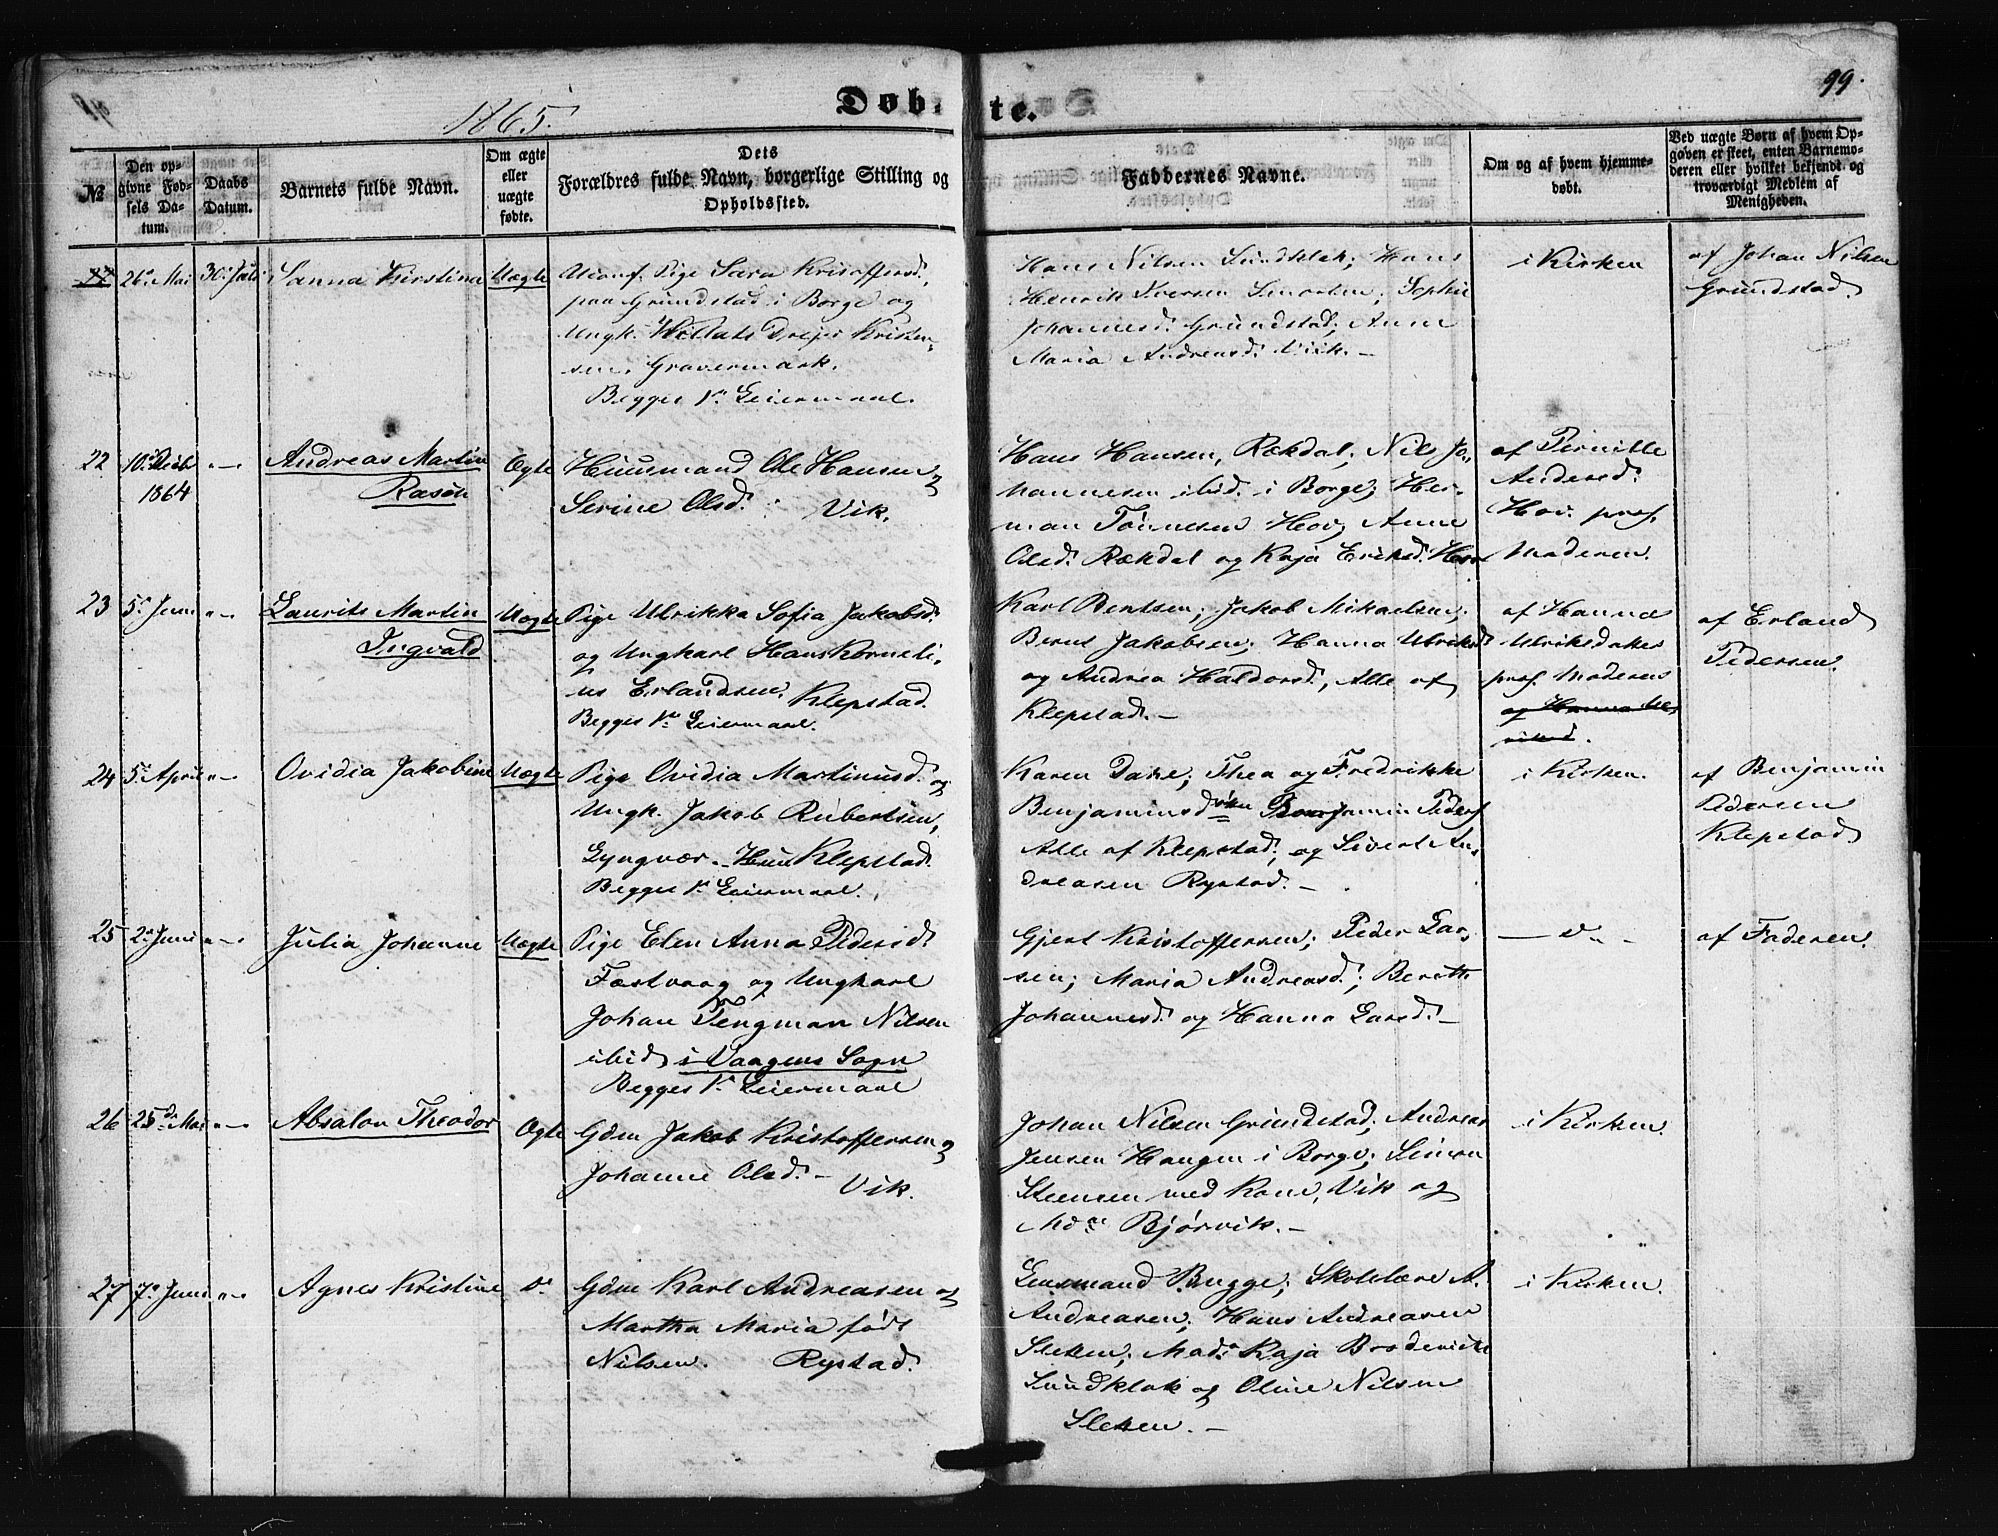 1865.
Døbte.
99.
№
Den opgivne Fødsels Datum.
Daabs Datum.
Barnets fulde Navn.
Om ægte eller uægte fødte.
Dets Forældres fulde Navn, borgerlige Stilling og Opholdssted.
Faddernes Navne.
Om og af hvem hjemmedøbt.
Ved uægte Børn af hvem Opgaven er skeet, enten Barnemoderen eller hvilket bekjendt og troværdigt Medlem af Menigheden.
26de Mai 30. Juli Sanna Kirstina Uægte
Uconf. Pige Sara Kristoffersd.
paa Grundstad i Borge og
Ungk. Dreyer Kristen-
sen, Gravermark.
Begges 1ste Leiermaal.
Hans Nilsen Sundklak; Hans
Henrik Iversen Smorten; Sophie
Johannesd. Grundstad; Anne
Maria Andreasd. Vik. –
i Kirken
af Johan Nilsen
Grundstad.
22 10. Decbr 1864 –„– Andreas Martin
Rasøn
Ægte
Huusmand Ole Hansen og
Serine Olsd. Vik.
Hans Hansen, Rækdal; Nils Jo-
hannesen ibid. i Borge; Her-
man Tønnesen Hov; Anne
Olsd. Rækdal og Kaja Eriksd. Hov
af Pernille
Andersd.
Hov. prof.
Moderen.
23 5. Juni –„– Laurits Martin
Ingvald
Uægte
Pige Ulrikka Sofia Jakobsd.
og Ungkarl Hans Korneli-
us Erlandsen, Klepstad.
Begges 1ste Leiermaal.
Karl Bentsen; Jakob Mikaelsen;
Bernt Jakobsen; Hanna Ulriksd.
og Andrea Haldorsd., Alle af
Klepstad. –
af Hanna
Ulriksdatter
prof. Moderen
af Erland
Pedersen.
24 5. April –„– Ovidia Jakobine Uægte
Pige Ovidia Martinusd. og
Ungk. Jakob Rubertsen,
Gyngvær. – Hun Klepstad.
Begges 1ste Leiermaal.
Karen Dake; Thea og Fredrikke
Benjaminsd. Benjamin Peders.
Alle af Klepstad; og Sivert An-
dreasen Rystad. –
i Kirken.
af Benjamin
Pedersen
Klepstad
25 2. Juni –„– Julia Johanne Uægte
Pige Elen Anna Pedersd.
Fæstvaag og Ungkarl
Johan Tengman Nilsen
ibid i Vaagens Sogn
Begges 1ste Leiermaal
Gjert Kristoffersen; Peder Lar-
sen; Maria Andreasd.; Berith
Johannesd. og Hanna Larsd. –
– do –
af Faderen.
26 25de Mai –„– Absalon Theodor Ægte
Gdm Jakob Kristoffersen og
Johanne Olsd. – Vik.
Johan Nilsen Grundstad; Andreas
Jensen Haugen i Borge; Simon
Steensen med Kone, Vik og
Mdme Bjørvik. –
i Kirken.
27 7. Juni –„– Agnes Kristine do
Gdm Karl Andreasen og
Martha Maria født
Nilsen. Rystad.
Lensmand Bugge; Skolelærer A.
Andreasen; Hans Andreasen
Sletten; Mad. Kaja Broderick
Sundklak og Oline Nilsen
Sletten. –
i Kirken.